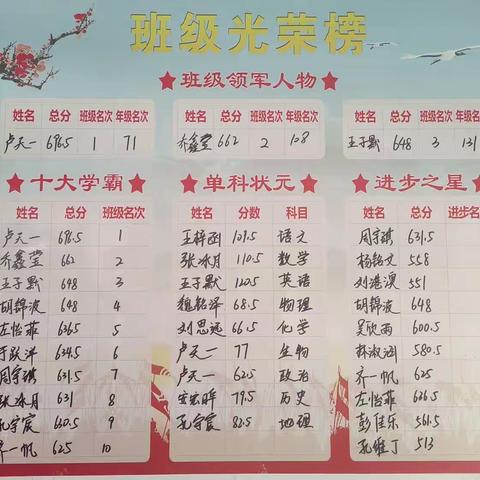 班级光荣榜
★班级领军人物★
姓名 总分 班级名次 年级名次
卢天一 676.5 1 71
姓名 总分 班级名次 年级名次
乔鑫莹 662 2 108
姓名 总分 班级名次 年级
王子默 648 3 131
★十大学霸★
姓名 总分 班级名次
卢天一 676.5 1
乔鑫莹 662 2
王子默 648 3
胡锦波 648 4
左怡菲 636.5 5
634.5 6
周宇琪 631.5 7
张冰月 631 8
孔宇宸 630.5 9
齐一帆 625 10
★单科状元★
姓名 分数 科目
王梓函 109.5 语文
张冰月 110.5 数学
王子默 120.5 英语
魏铭泽 68.5 物理
刘思远 66.5 化学
卢天一 77 生物
卢天一 62.5 政治
79.5 历史
孔宇宸 82.5 地理
★进步之星★
姓名 总分 进步名
周宇琪 631.5
杨铭文 558
刘港澳 551
胡锦波 648
吴欣雨 600.5
林淑涵 580.5
齐一帆 625
左怡菲 636.5
彭佳乐 561.5
孔维丁 513